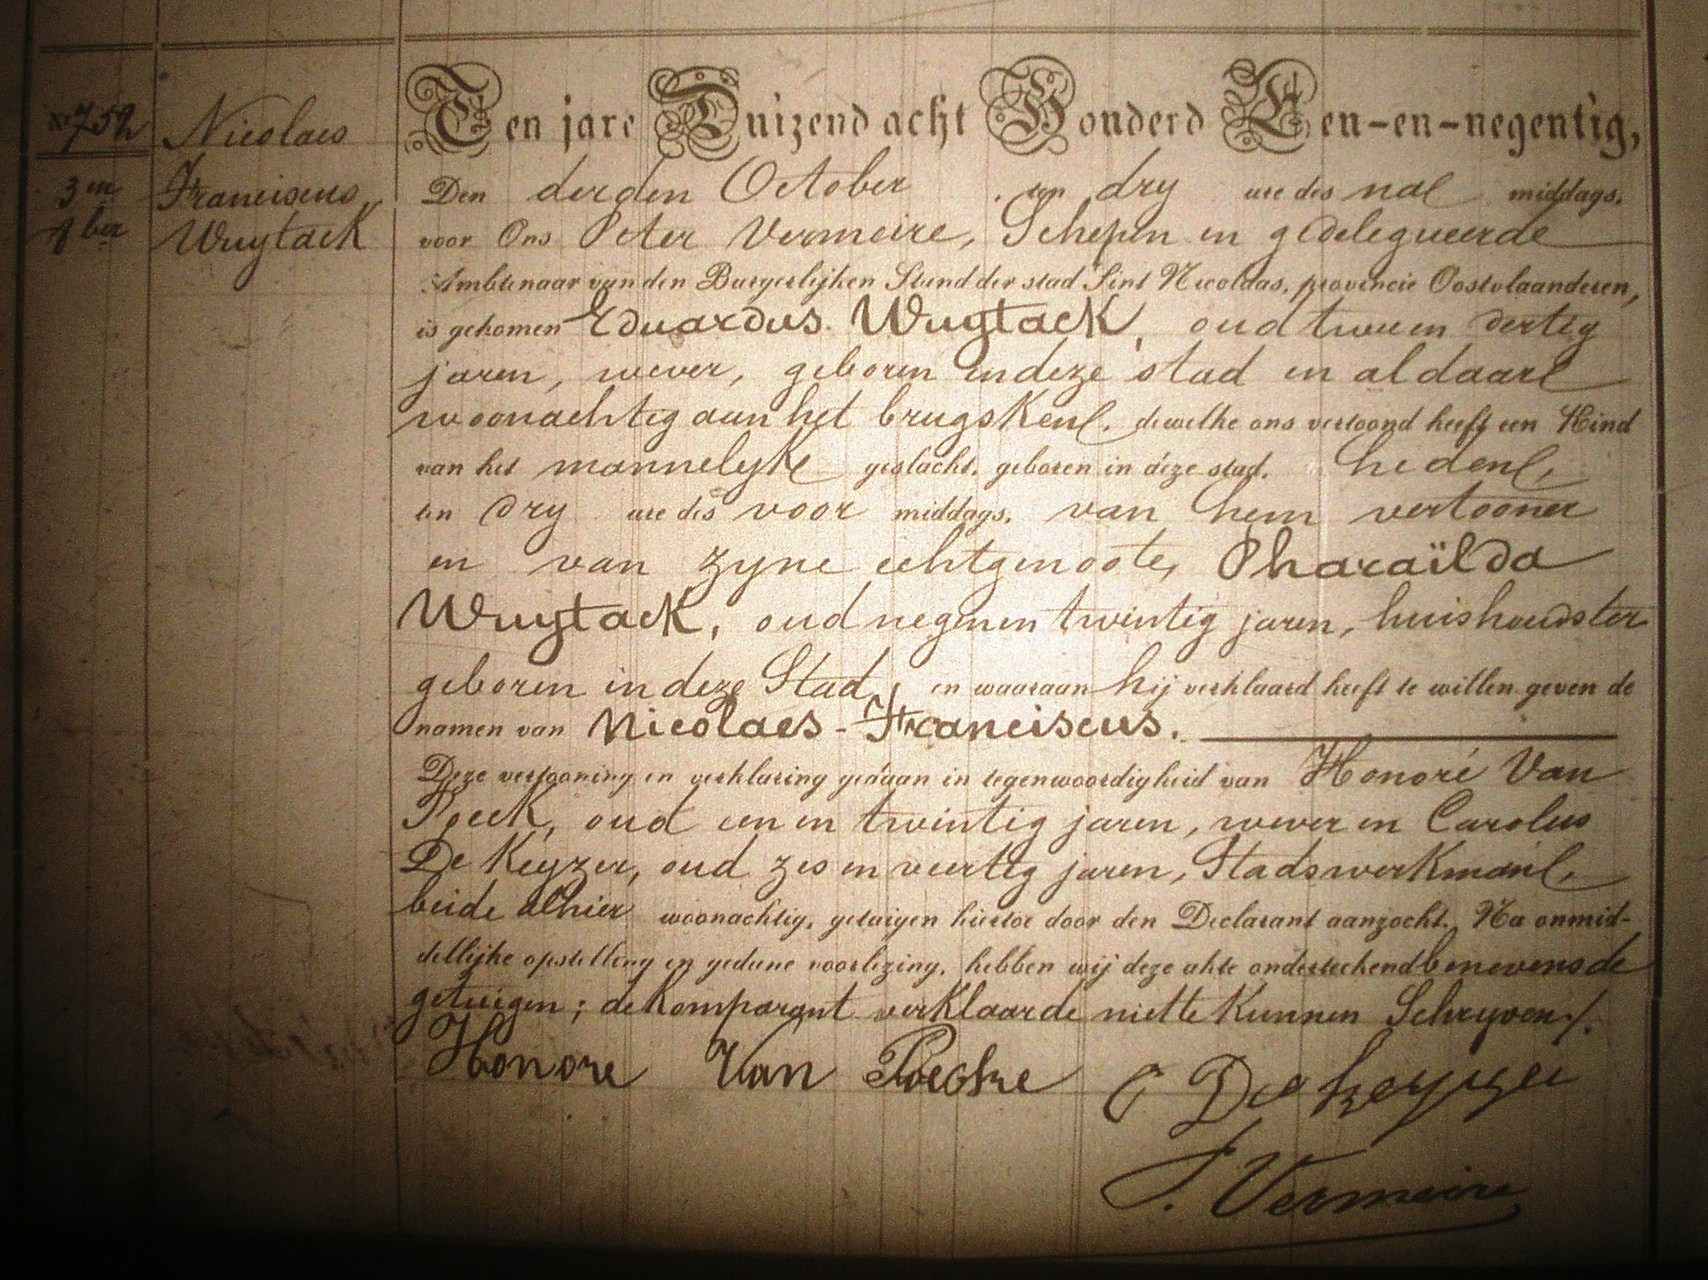 No 752
3en
8ber
Nicolaes
Franciscus
Wuytack
Ten jare Duizend acht Honderd Een-en-negentig,
Den derden October , ten dry ure des na middags,
voor Ons Peter Vermeire, Schepen en gedelegueerde
Ambtenaar van den Burgerlijken Stand der stad Sint Nicolaas, provincie Oostvlaanderen,
is gekomen Eduardus Wuytack, oud twee en dertig
jaren, wever, geboren in deze stad en aldaar
woonachtig aan het brugsken, dewelke ons vertoond heeft een Kind
van het mannelyke geslacht, geboren in deze stad, heden,
ten dry ure des voor middags, van hem vertooner
en van zyne echtgenoote, Pharaïlda
Wuytack, oud negen en twintig jaren, huishoudster
geboren in deze Stad, en waaraan hij verklaard heeft te willen geven de
namen van Nicolaes-Franciscus.
Deze vertooning en verklaring gedaan in tegenwoordigheid van Honoré Van
Poeck, oud een en twintig jaren, wever en Carolus
De Keyzer, oud zes en veertig jaren, Stadswerkman,
beide alhier woonachtig, getuigen hiertoe door den Declarant aanzocht. Na onmid-
dellijke opstelling en gedane voorlezing, hebben wij deze akte onderteekend benevens de
getuigen; de Komparant verklaarde niet te Kunnen Schryven/.
Honore Van Poecke C Dekeyzer
P. Vermeire